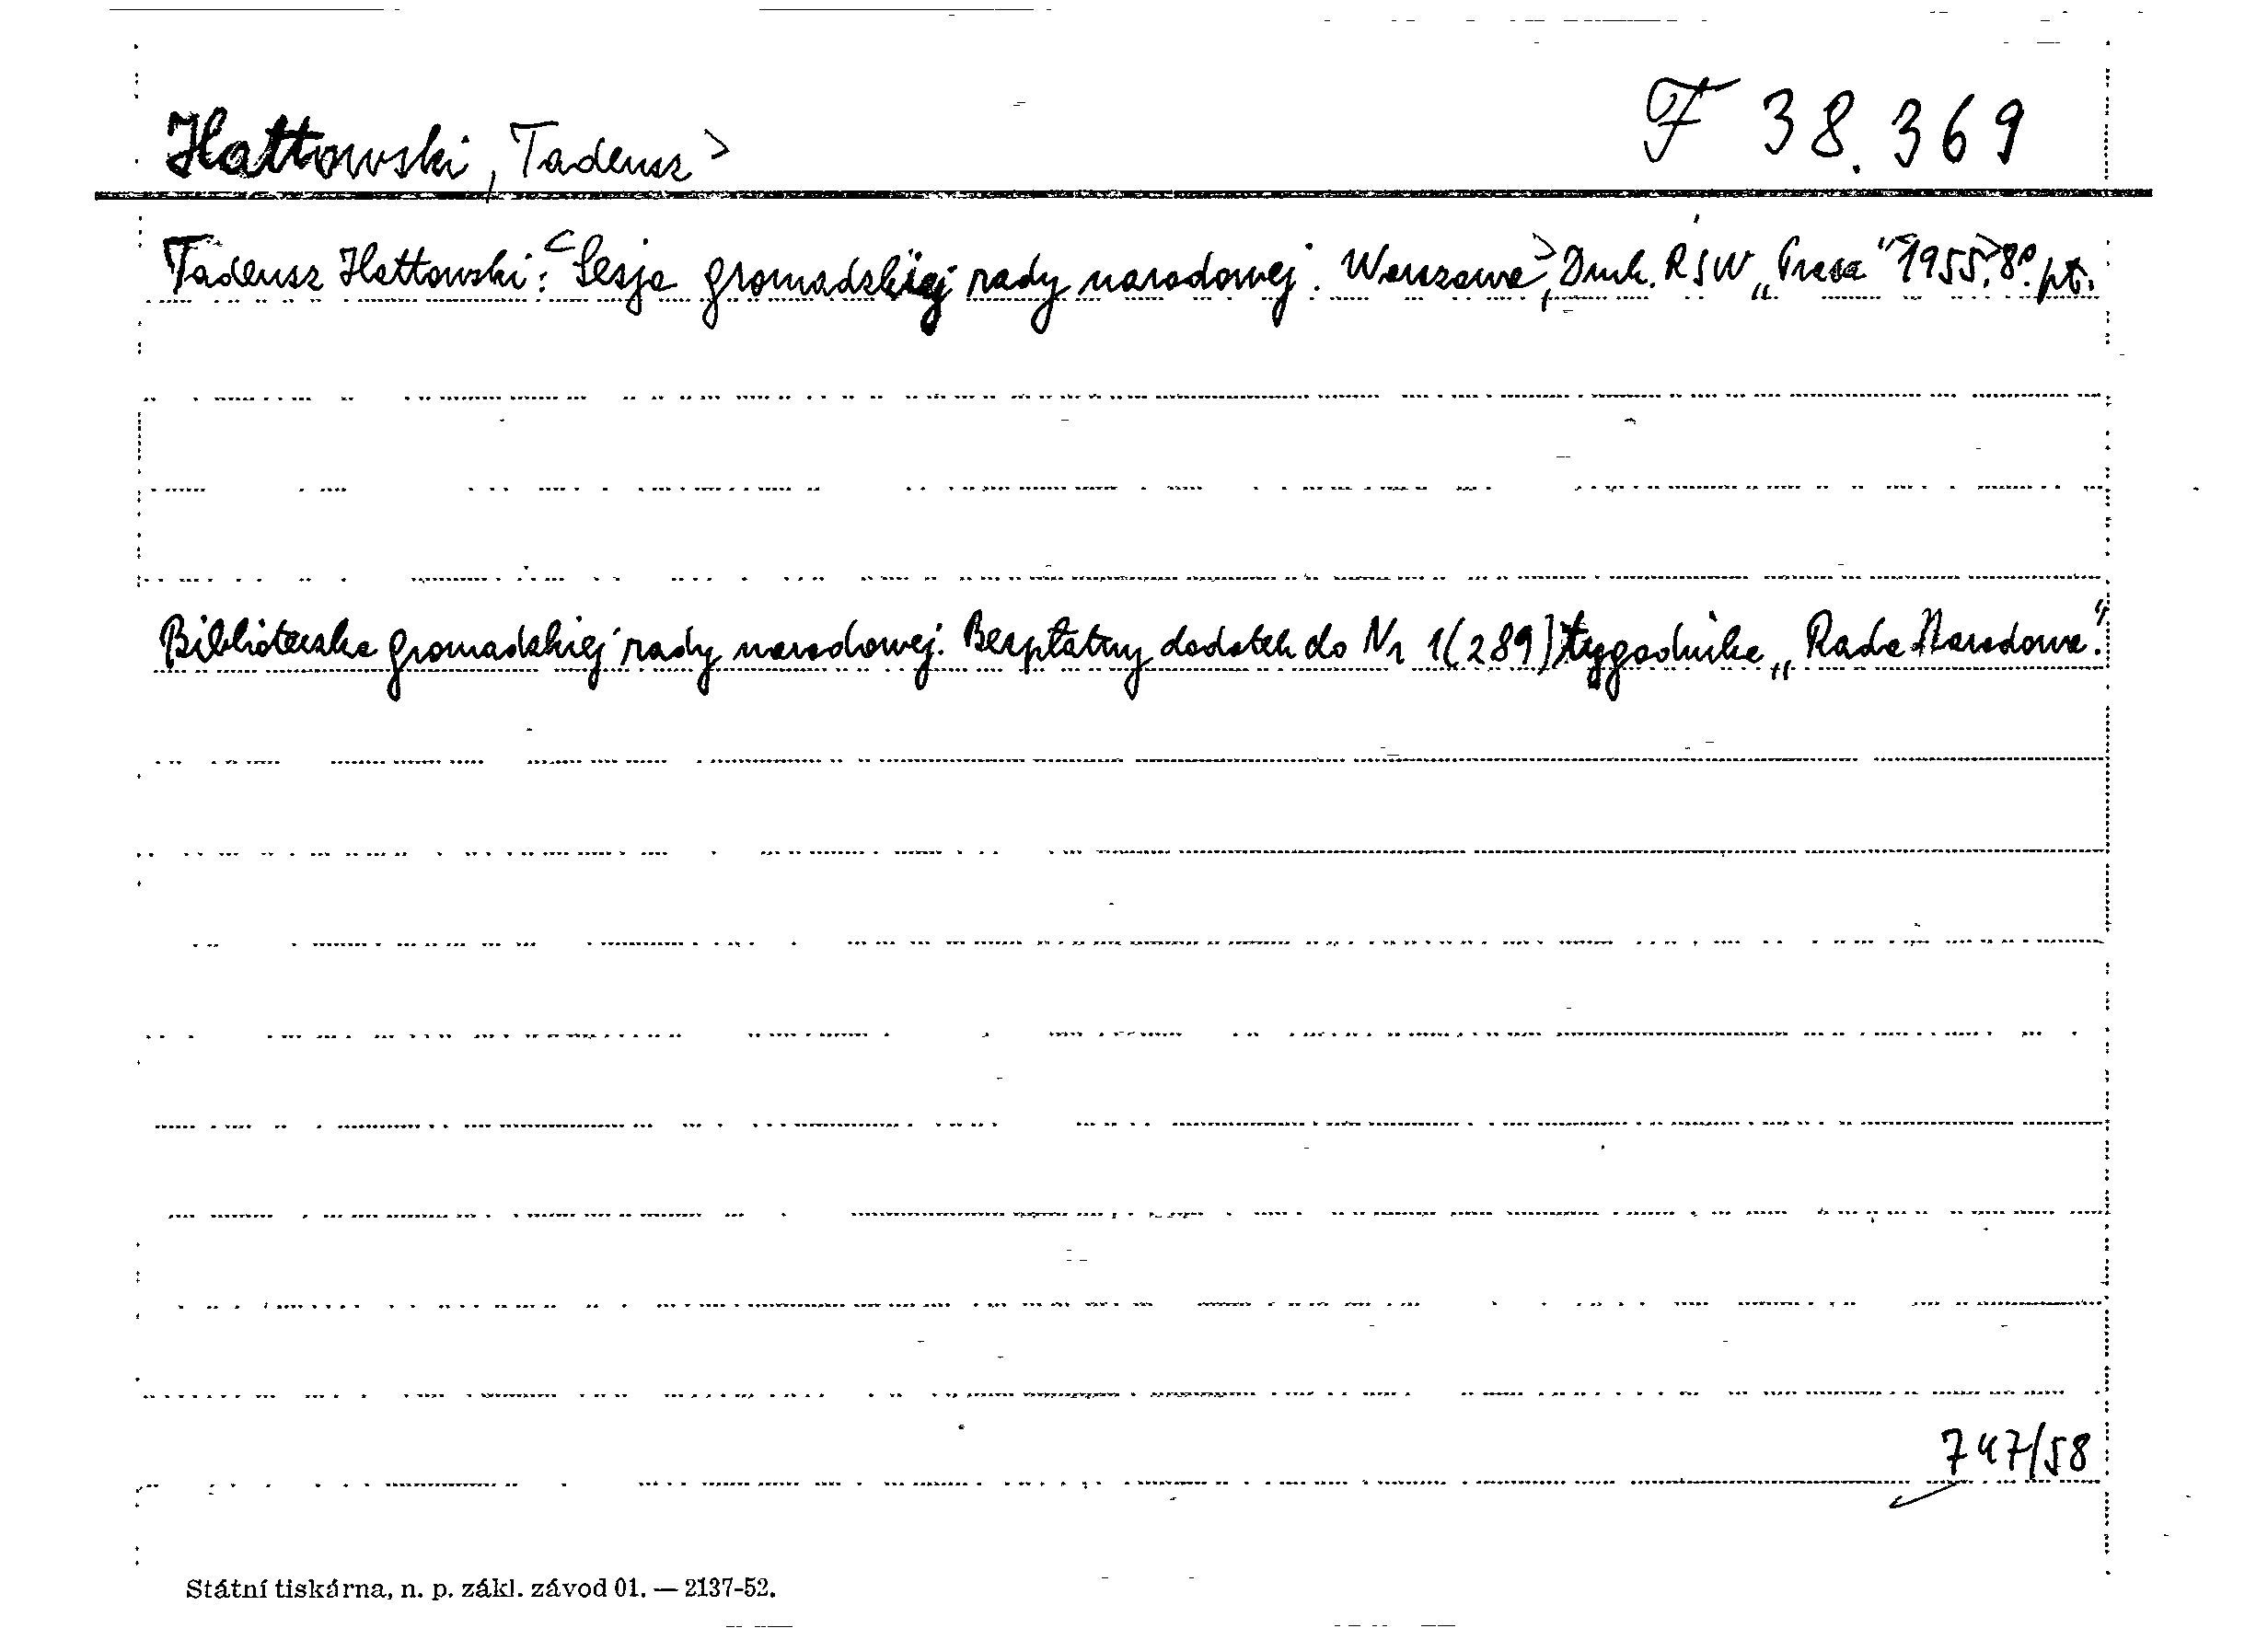 Hattowski, Tadeusz> F 38.369
Tadeusz Hattowski: <Sesja gromadzkiej rady narodowej. Warszawa>, Druk. RSW „Prasa" 1955. 8°. pt.
Biblioteczka gromadzkiej rady narodowej. Bezpłatny dodatek do Nr 1(289) tygodnika „Rada Narodowa."
747/58
Státní tiskárna, n. p. zákl. závod 01. — 2137-52.